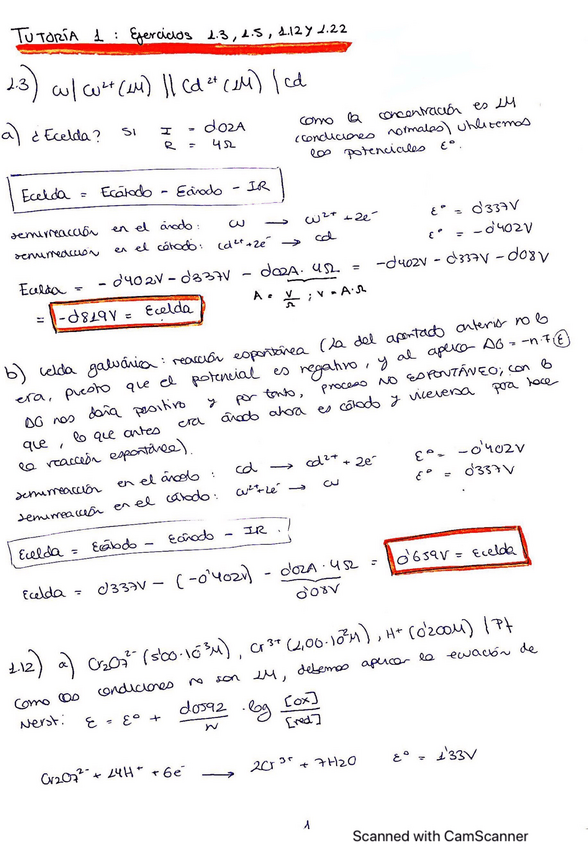 TUTORÍA 1 : Ejercicios 1.3, 1.5, 1.12 y 1.22
1.3) Cu | Cu²⁺ (1M) || Cd²⁺ (1M) | Cd
a) ¿Ecelda? si I = 0'02A
R = 4Ω
como la concentración es 1M
(condiciones normales) utilizamos
los potenciales ε°.
Ecelda = Ecátodo - Eánodo - IR
semirreacción en el ánodo: Cu → Cu²⁺ + 2e⁻ ε° = 0'337V
semirreacción en el cátodo: Cd²⁺ + 2e⁻ → Cd ε° = -0'402V
Ecelda = -0'402V - 0'337V - 0'02A · 4Ω = -0'402V - 0'337V - 0'08V
A = V/Ω ; V = A·Ω
= -0'819V = Ecelda
b) celda galvánica: reacción espontánea (la del apartado anterior no lo
era, puesto que el potencial es negativo, y al aplicar ΔG = -n·F·E
ΔG nos daría positivo y por tanto, proceso NO ESPONTÁNEO; con lo
que, lo que antes era ánodo ahora es cátodo y viceversa para hacer
la reacción espontánea).
semirreacción en el ánodo : Cd → Cd²⁺ + 2e⁻ ε° = -0'402V
semirreacción en el cátodo: Cu²⁺ + 2e⁻ → Cu ε° = 0'337V
Ecelda = Ecátodo - Eánodo - IR.
Ecelda = 0'337V - (-0'402V) - 0'02A · 4Ω = 0'659V = Ecelda
0'08V
1.12) a) Cr2O7²⁻ (5'00·10⁻³M), Cr³⁺ (1,00·10⁻²M), H⁺ (0'200M) | Pt
Como las condiciones no son 1M, debemos aplicar la ecuación de
Nerst: ε = ε° + 0'0592/n · log [ox]/[red]
Cr2O7²⁻ + 14H⁺ + 6e⁻ → 2Cr³⁺ + 7H2O ε° = 1'33V
1
Scanned with CamScanner